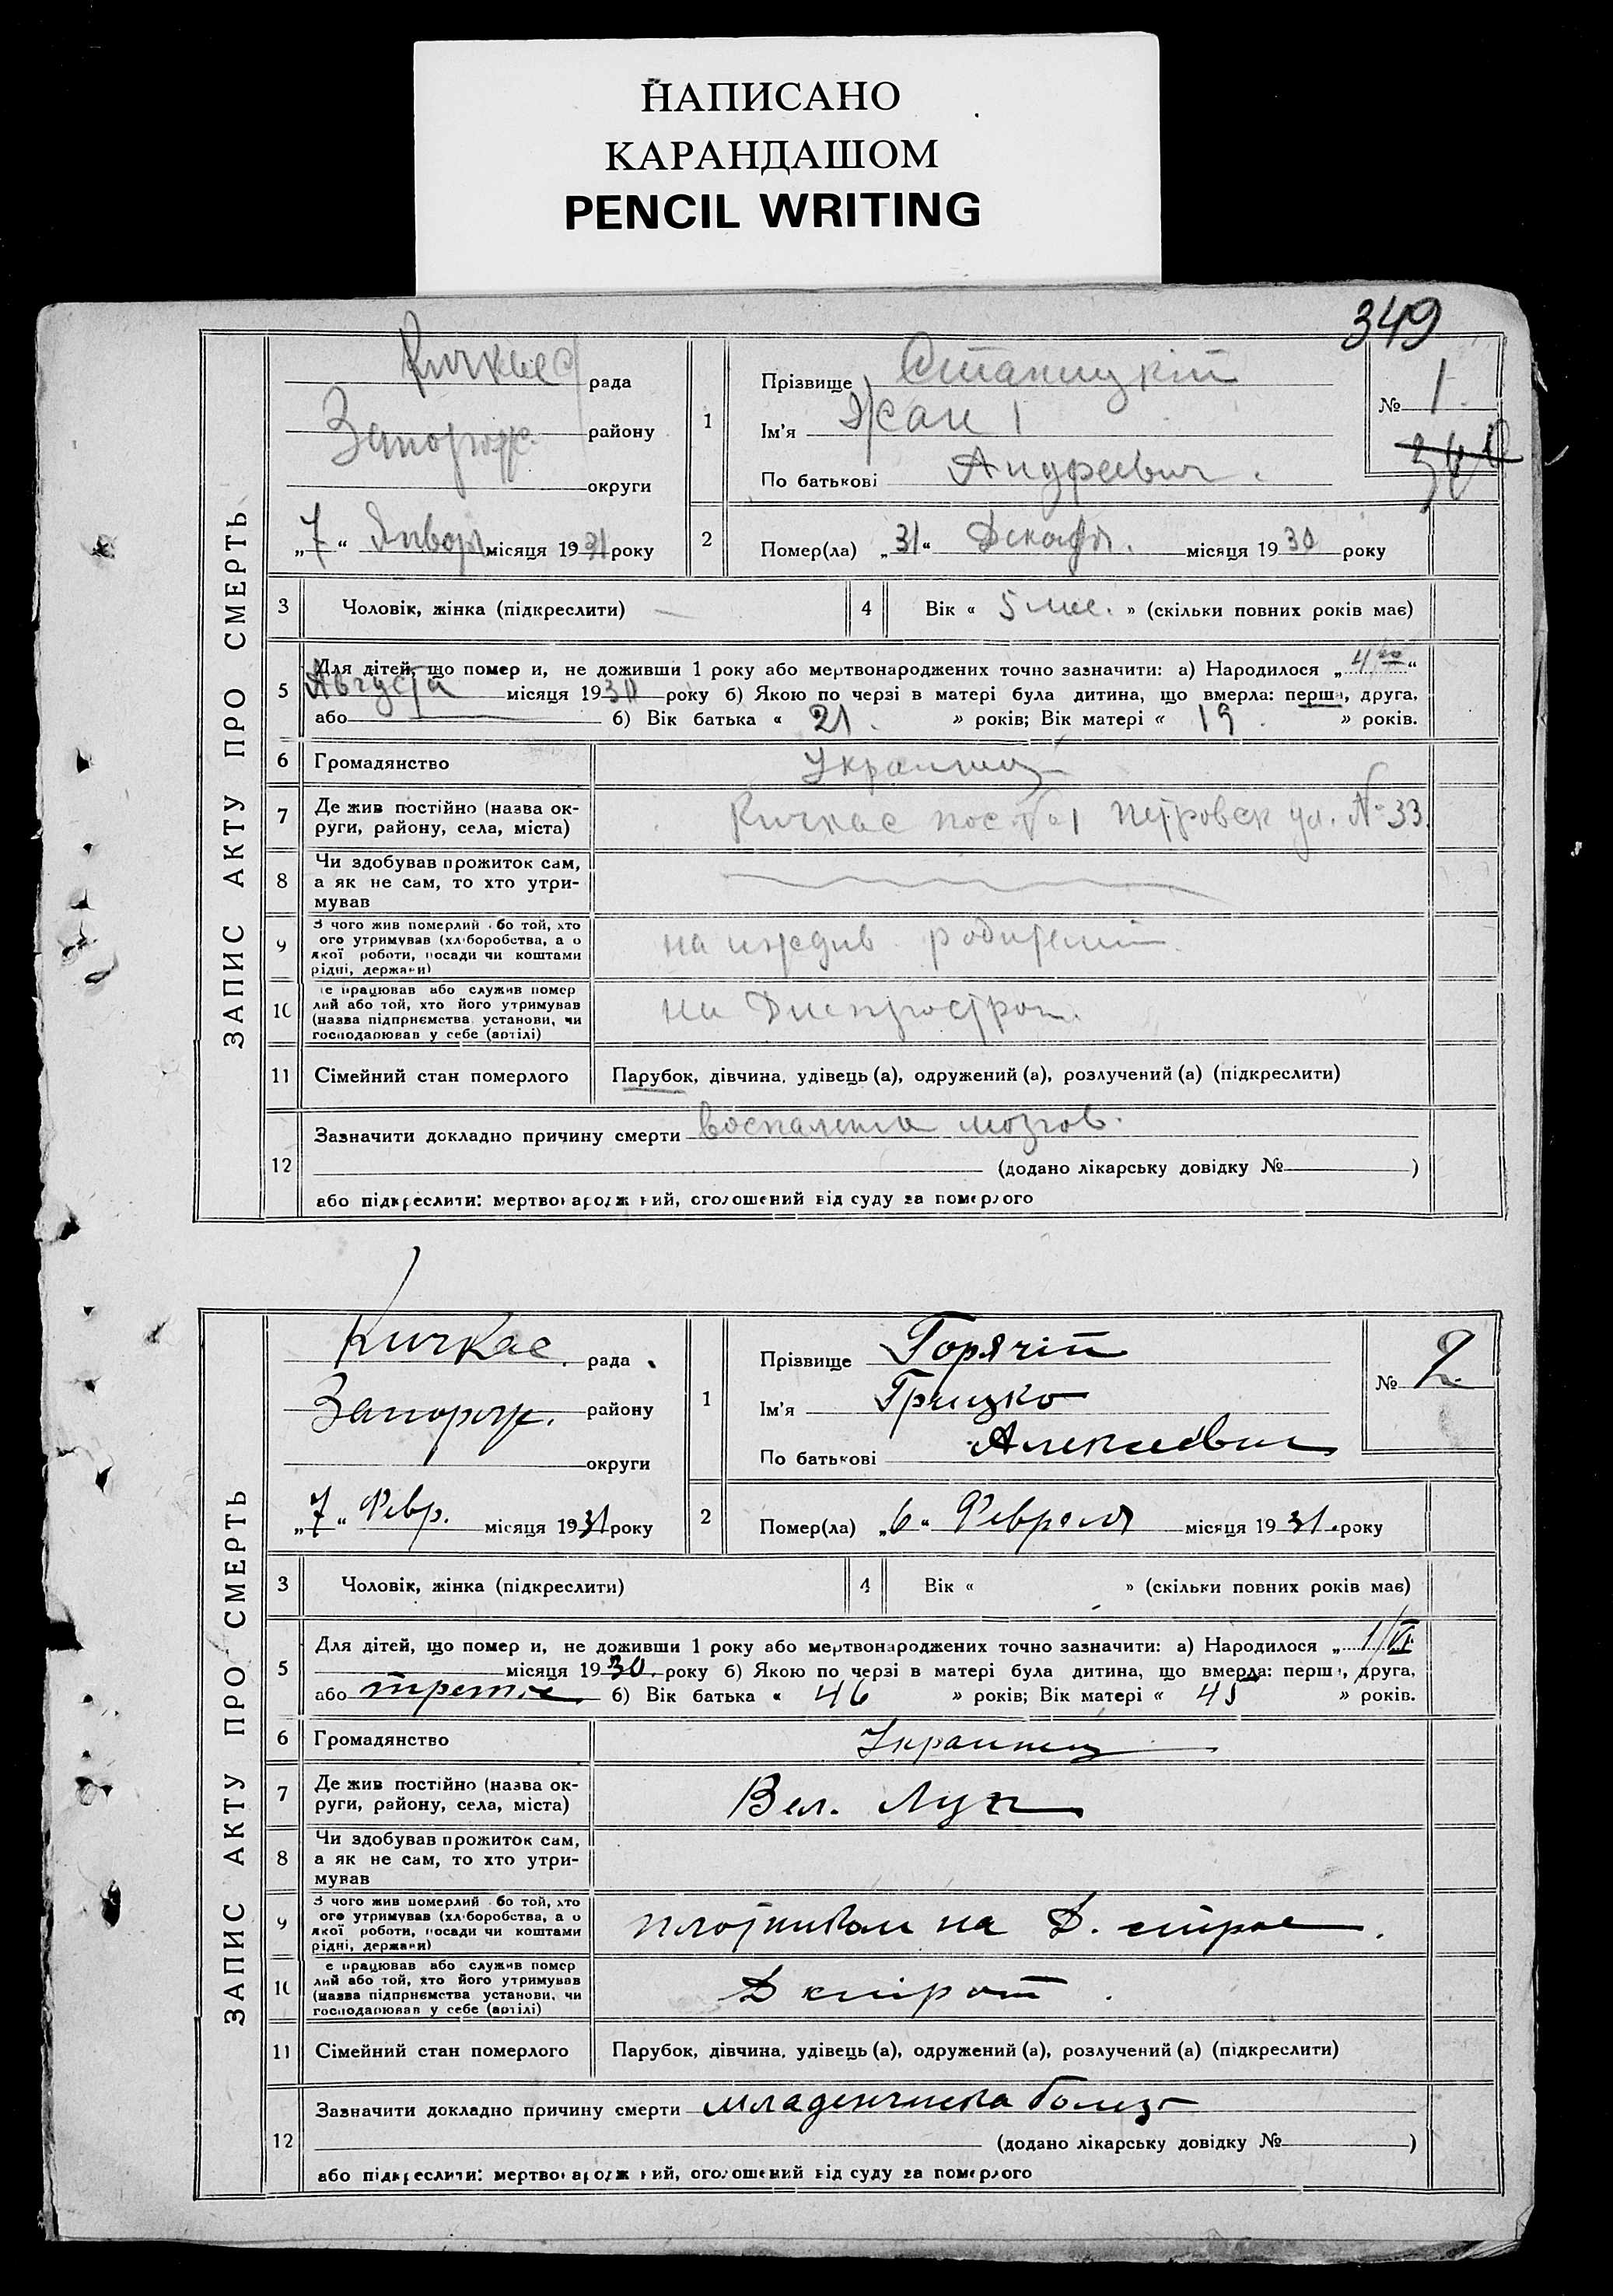 НАПИСАНО
КАРАНДАШОМ
PENCIL WRITING
349
ЗАПИС АКТУ ПРО СМЕРТЬ
Кичкас рада
Запорож. району
округи
„7“ Января місяця 1931 року
1 Прізвище
Ім'я Жан
По батькові Андреевич.
№ 1
2 Помер(ла) „31“ Декабр. місяця 1930 року
3 Чоловік, жінка (підкреслити)
4 Вік « 5 мес. » (скільки повних років має)
5 Для дітей, що померли, не доживши 1 року або мертвонароджених точно зазначити: а) Народилося „4го“
Августа місяця 1930 року б) Якою по черзі в матері була дитина, що вмерла: перша, друга,
або б) Вік батька « 21 » років; Вік матері « 19 » років.
6 Громадянство Украинец
7 Де жив постійно (назва округи, району, села, міста) Кичкас пос. №1 Петровск ул. №33.
8 Чи здобував прожиток сам,
а як не сам, то хто утри-
мував
9 З чого жив померлий або той, хто
його утримував (хліборобства, а о
якої роботи, посади чи коштами
рідні, держави) на иждив. родителей
10 Де працював або служив помер
лий або той, хто його утримував
(назва підприємства, установи, чи
господарював у себе (артілі) на Днепрострой.
11 Сімейний стан померлого Парубок, дівчина, удівець (а), одружений (а), розлучений (а) (підкреслити)
12 Зазначити докладно причину смерти воспаления мозгов.
(додано лікарську довідку № )
або підкреслити: мертвонароджений, оголошений від суду за померлого
ЗАПИС АКТУ ПРО СМЕРТЬ
Кичкас. рада
Запорож. району
округи
„7“ Февр. місяця 1931 року
1 Прізвище Горячій
Ім'я Грицко
По батькові Алексеевич
№ 2
2 Помер(ла) „6“ Февраля місяця 1931. року
3 Чоловік, жінка (підкреслити)
4 Вік « » (скільки повних років має)
5 Для дітей, що померли, не доживши 1 року або мертвонароджених точно зазначити: а) Народилося „1/VI
місяця 1930. року б) Якою по черзі в матері була дитина, що вмерла: перша, друга,
або б) Вік батька « 46 » років; Вік матері « 45 » років.
6 Громадянство Украинец
7 Де жив постійно (назва округи, району, села, міста) Вел. Луг
8 Чи здобував прожиток сам,
а як не сам, то хто утри-
мував
9 З чого жив померлий або той, хто
його утримував (хліборобства, а о
якої роботи, посади чи коштами
рідні, держави) плотником на Д. строе.
10 Де працював або служив помер
лий або той, хто його утримував
(назва підприємства установи, чи
господарював у себе (артілі) Д строй.
11 Сімейний стан померлого Парубок, дівчина, удівець (а), одружений (а), розлучений (а) (підкреслити)
12 Зазначити докладно причину смерти младенческа болез
(додано лікарську довідку № )
або підкреслити: мертвонароджений, оголошений від суду за померлого